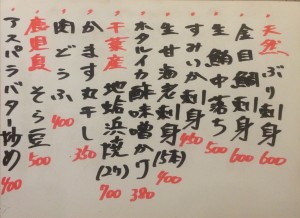 天然 ぶり刺身 600
金目鯛刺身 600
生鮪中落ち 500
すみいか刺身 450
生甘海老刺身(5本) 400
ホタルイカ酢味噌かけ 380
千葉産 地蛤浜焼(2ケ) 700
かます丸干し 350
肉どうふ 400
鹿児島 そら豆 500
アスパラバター炒め 400